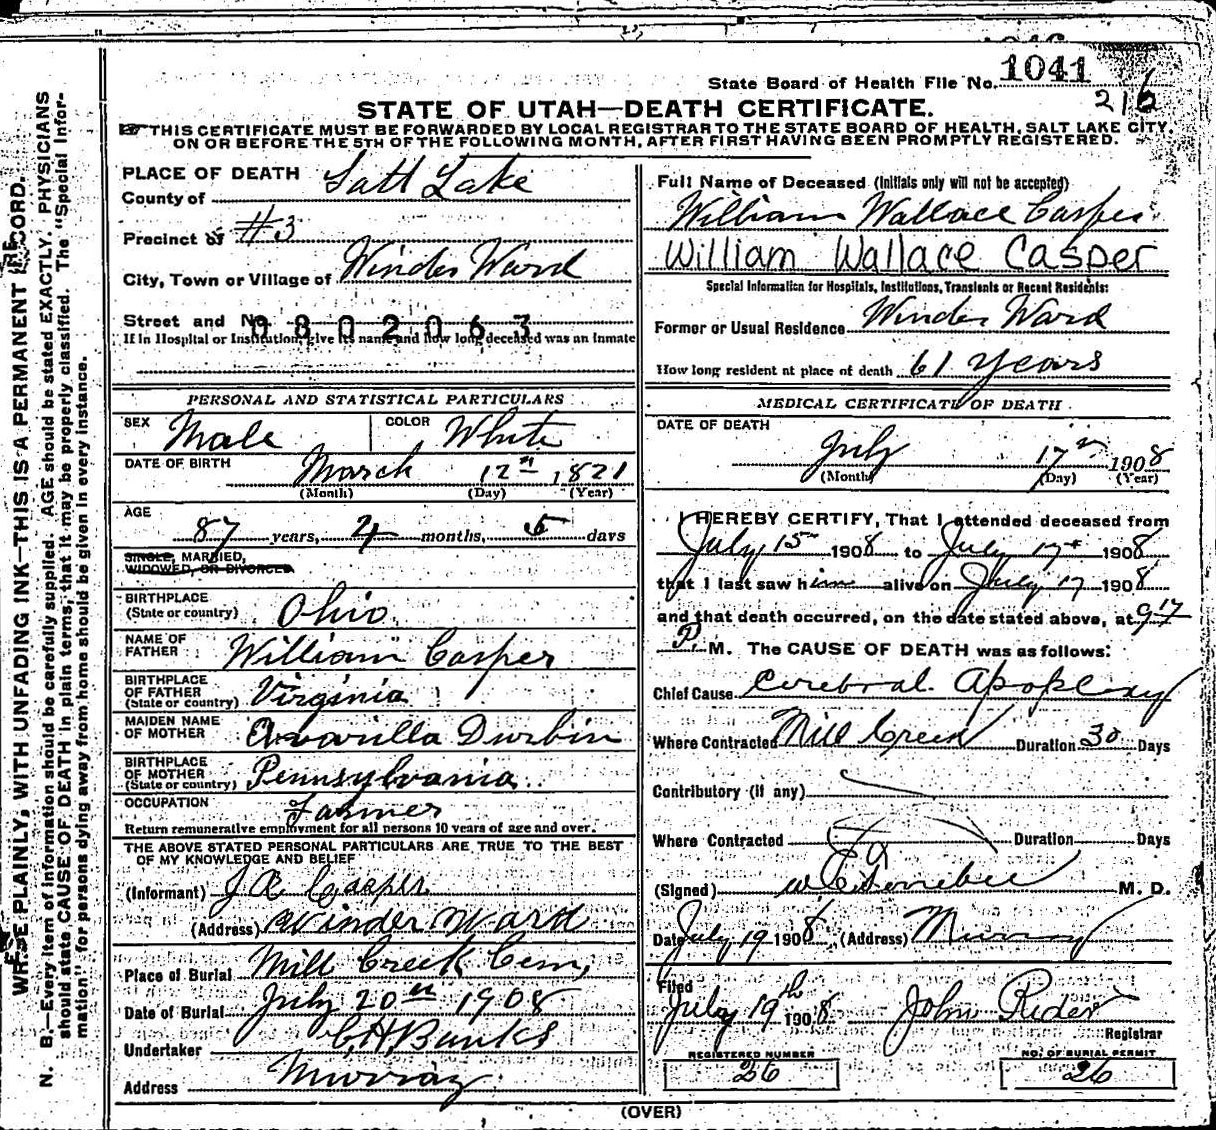 State Board of Health File No. 1041
216
STATE OF UTAH—DEATH CERTIFICATE.
THIS CERTIFICATE MUST BE FORWARDED BY LOCAL REGISTRAR TO THE STATE BOARD OF HEALTH, SALT LAKE CITY,
ON OR BEFORE THE 5TH OF THE FOLLOWING MONTH, AFTER FIRST HAVING BEEN PROMPTLY REGISTERED.
PLACE OF DEATH
County of Salt Lake
Precinct of #3
City, Town or Village of Winder Ward
Street and No. 0802063
If in Hospital or Institution, give its name and how long deceased was an inmate
PERSONAL AND STATISTICAL PARTICULARS
SEX Male COLOR White
DATE OF BIRTH March 12th, 1821
(Month) (Day) (Year)
AGE
87 years, 4 months, 5 days
SINGLE, MARRIED,
WIDOWED, OR DIVORCED
BIRTHPLACE
(State or country) Ohio
NAME OF
FATHER William Casper
BIRTHPLACE
OF FATHER
(State or country) Virginia
MAIDEN NAME
OF MOTHER Avarilla Durbin
BIRTHPLACE
OF MOTHER
(State or country) Pennsylvania
OCCUPATION Farmer
Return remunerative employment for all persons 10 years of age and over.
THE ABOVE STATED PERSONAL PARTICULARS ARE TRUE TO THE BEST
OF MY KNOWLEDGE AND BELIEF
(Informant) J Casper
(Address) Winder Ward
Place of Burial Mill Creek Cem,
Date of Burial July 20th 1908
Undertaker Banks
Address Murray
Full Name of Deceased (Initials only will not be accepted)
William Wallace Casper
William Wallace Casper
Special Information for Hospitals, Institutions, Transients or Recent Residents:
Former or Usual Residence Winder Ward
How long resident at place of death 61 years
MEDICAL CERTIFICATE OF DEATH
DATE OF DEATH
July 17th 1908
(Month) (Day) (Year)
I HEREBY CERTIFY, That I attended deceased from
July 15th 1908 to July 17th 1908
that I last saw him alive on July 17 1908
and that death occurred, on the date stated above, at 9 17
P. M. The CAUSE OF DEATH was as follows:
Chief Cause Cerebral Apoplexy
Where Contracted Mill Creek Duration 30 Days
Contributory (if any)
Where Contracted Duration Days
(Signed) M. D.
Date July 19 1908, (Address) Murray
Filed
July 19th 1908 John Rider
Registrar
REGISTERED NUMBER
26
NO. OF BURIAL PERMIT
26
(OVER)
WRITE PLAINLY, WITH UNFADING INK—THIS IS A PERMANENT RECORD.
N. B.—Every item of information should be carefully supplied. AGE should be stated EXACTLY. PHYSICIANS
should state CAUSE OF DEATH in plain terms, that it may be properly classified. The "Special Infor-
mation" for persons dying away from home should be given in every instance.